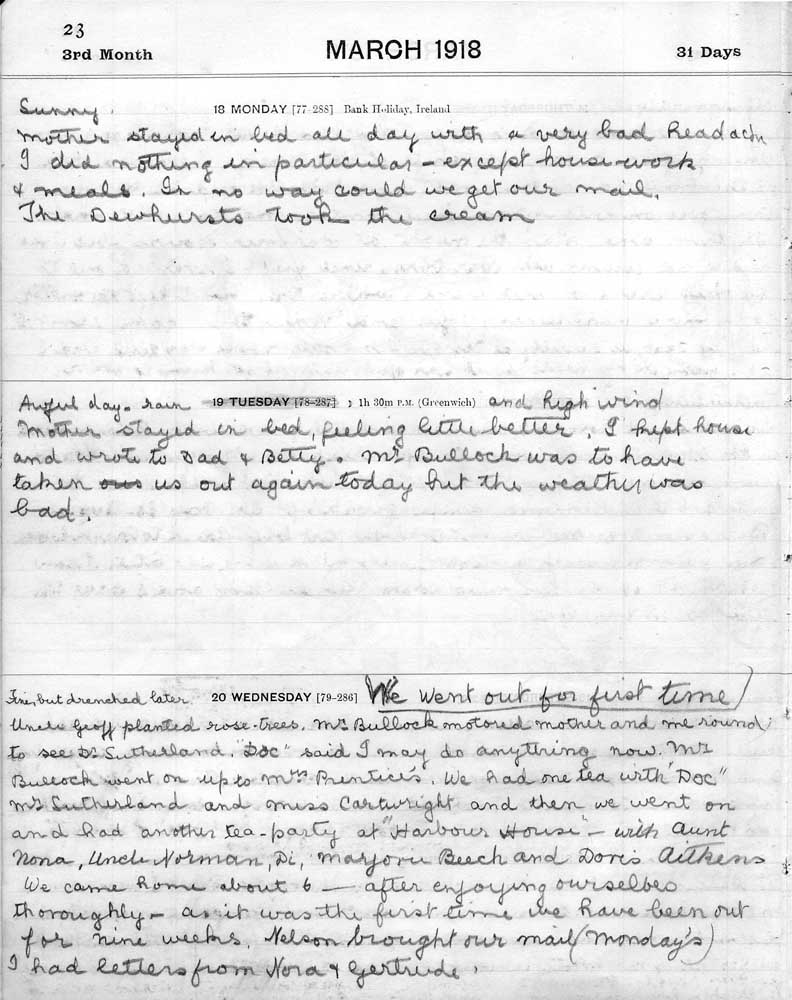 23
3rd Month MARCH 1918 31 Days
Sunny. 18 MONDAY [77-288] Bank Holiday, Ireland
Mother stayed in bed all day with a very bad headache
I did nothing in particular - except house-work
& meals. In no way could we get our mail.
The Dewhursts took the cream
Awful day. rain 19 TUESDAY [78-287] ☽ 1h 30m P.M. (Greenwich) and high wind
Mother stayed in bed, feeling little better. I kept house
and wrote to Dad & Betty. Mr Bullock was to have
taken ous us out again today but the weather was
bad.
Fine, but drenched later. 20 WEDNESDAY [79-286] We went out for first time)
Uncle Geoff planted rose-trees. Mr Bullock motored mother and me round
to see Dr Sutherland. "Doc" said I may do anything now. Mr
Bullock went on up to Mrs Prentice's. We had one tea with "Doc"
Mrs Sutherland and Miss Cartwright and then we went on
and had another tea-party at "Harbour House" - with Aunt
Nona, Uncle Norman, Di, Marjorie Beech and Doris Aitkens
We came home about 6 - after enjoying ourselves
thoroughly - as it was the first time we have been out
for nine weeks. Nelson brought our mail (Monday's)
I had letters from Nora & Gertrude.